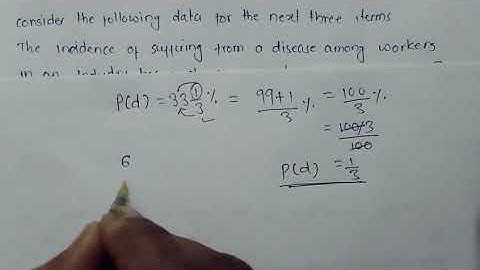 consider the following data for the next three items
The incidence of suffering from a disease among workers
in an
P(d) = 33 1/3 % = 99+1/3 % = 100/3 %
= 100/3/100
P(d) = 1/3
6